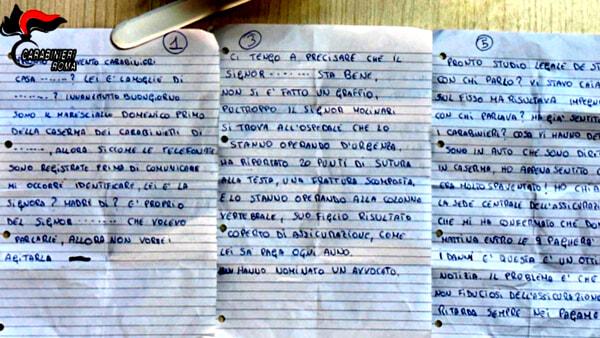 CARABINIERI
ROMA
1
CARABINIERI
CASA ........? LEI È LA MOGLIE DI
........? INNANZITUTTO BUONGIORNO
SONO IL MARESCIALLO DOMENICO PRIMO
DELLA CASERMA DEI CARABINIERI DI
........, ALLORA SICCOME LE TELEFONATE
SONO REGISTRATE PRIMA DI COMUNICARE
MI OCCORRE IDENTIFICARE, LEI È LA
SIGNORA? MADRE DI? È PROPRIO
DEL SIGNOR ........ CHE VOLEVO
PARLARLE, ALLORA NON VORREI
AGITARLA
3
CI TENGO A PRECISARE CHE IL
SIGNOR ........ STA BENE,
NON SI È FATTO UN GRAFFIO,
POLTROPPO IL SIGNOR MOLINARI
SI TROVA ALL'OSPEDALE CHE LO
STANNO OPERANDO D'URGENZA.
HA RIPORTATO 20 PUNTI DI SUTURA
ALLA TESTA, UNA FRATTURA SCOMPOSTA,
E LO STANNO OPERANDO ALLA COLONNA
VERTEBRALE, SUO FIGLIO RISULTATO
COPERTO DI ASSICURAZIONE, COME
LEI SA PAGA OGNI ANNO.
HANNO NOMINATO UN AVVOCATO.
5
PRONTO STUDIO LEGALE DE ST
CON CHI PARLO? VI STAVO CHIA
SUL FISSO MA RISULTAVA IMPEGN
CON CHI PARLAVA? HA GIÀ SENTIT
I CARABINIERI? COSA VI HANNO DE
SONO IN AUTO CHE SONO DIRE
IN CASERMA, HO APPENA SENTITO
ERA MOLTO SPAVENTATO! HO CHIA
LA SEDE CENTRALE DELL'ASSICURAZI
CHE MI HA CONFERMATO CHE DOM
MATTINA ENTRO LE 9 PAGHERA'
I DANNI E' QUESTA E' UN OTTI
NOTIZIA. IL PROBLEMA E' CHE
NON FIDUCIOSI DELL'ASSICURAZIONE
RITARDA SEMPRE NEI PAGAME